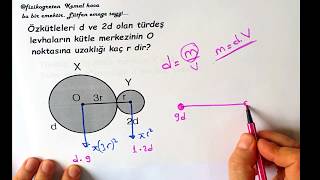 @fizikogreten Kemal hoca
bu bir emektir. Lütfen emeğe saygı...
Özkütleleri d ve 2d olan türdeş
levhaların kütle merkezinin O
noktasına uzaklığı kaç r dir?
d = m/V
m = d V
X
Y
O
3r
r
d
2d
π(3r)²
πr²
d.9
1.2d
9d